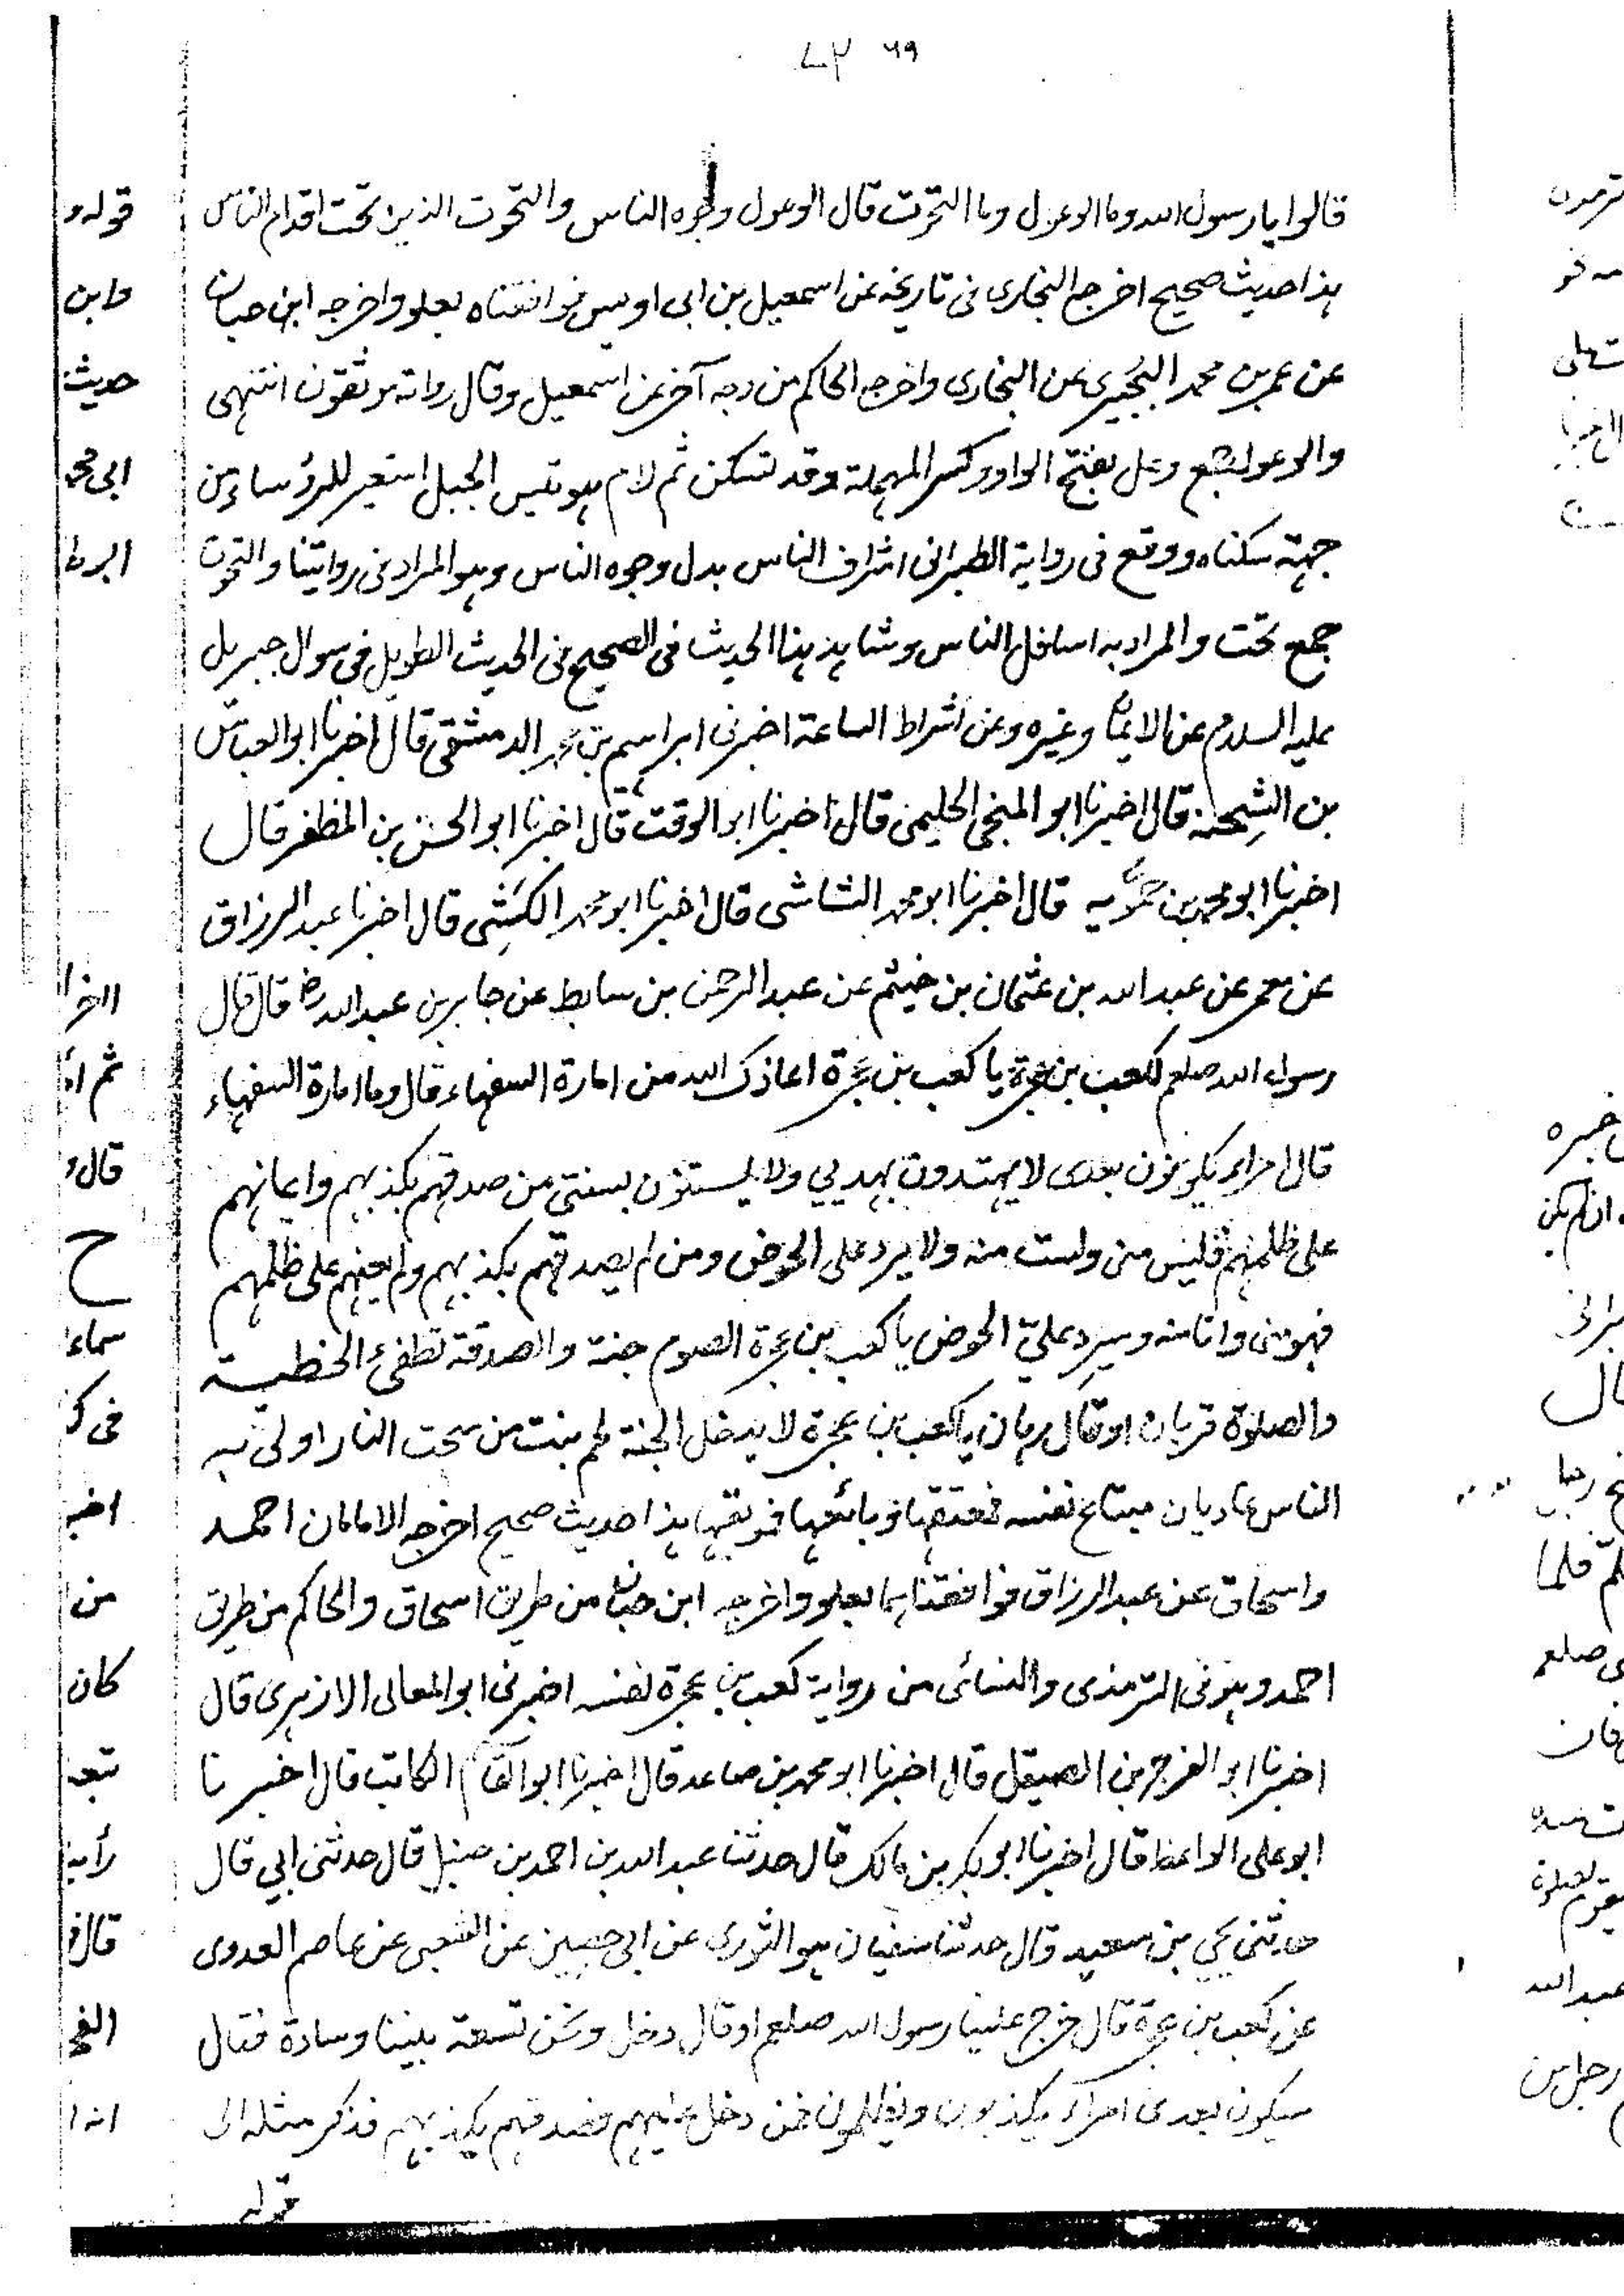 ٦٩ ٧٣
قالوا يا رسول الله وما الوعول وما التحوت قال الوعول وجوه الناس والتحوت الذين تحت اقدام الناس
هذا حديث صحيح اخرجه البخارى فى تاريخه عن اسمعيل بن ابى اويس فوافقناه بعلو واخرجه ابن حبان
عن عمر بن محمد البُجَيرى عن البخارى واخرجه الحاكم من وجه آخر عن اسمعيل وقال رواته موثقون انتهى
والوعول جمع وعل بفتح الواو وكسر المهملة وقد تسكن ثم لام هو تيس الجبل استعير للرؤساء من
جهة سكناه ووقع فى رواية الطبرانى اشراف الناس بدل وجوه الناس وهو المراد فى روايتنا والتحوت
جمع تحت والمراد به اسافل الناس وشاهد هذا الحديث فى الصحيح فى الحديث الطويل فى سوال جبريل
عليه السلام عن الايمان وغيره وعن اشراط الساعة اخبرنى ابراهيم بن محمد الدمشقى قال اخبرنا ابو العباس
بن الشِحنة قال اخبرنا ابو المنجى الحليمى قال اخبرنا ابو الوقت قال اخبرنا ابو الحسن بن المظفر قال
اخبرنا ابو محمد بن حمّويه قال اخبرنا ابو محمد الشاشى قال اخبرنا ابو محمد الكشى قال اخبرنا عبد الرزاق
عن معمر عن عبد الله بن عثمان بن خيثم عن عبد الرحمن بن سابط عن جابر بن عبد الله رض قال قال
رسول الله صلعم لكعب بن عجرة يا كعب بن عجرة اعاذك الله من امارة السفهاء قال وما امارة السفهاء
قال امراء يكونون بعدى لا يهتدون بهديي ولا يستنون بسنتى من صدقهم بكذبهم واعانهم
على ظلمهم فليس منى ولست منه ولا يرد على الحوض ومن لم يصدقهم بكذبهم ولم يعنهم على ظلمهم
فهو منى وانا منه وسيرد عليّ الحوض يا كعب بن عجرة الصوم جنة والصدقة تطفئ الخطية
والصلوة قربان او قال برهان يا كعب بن عجرة لا يدخل الجنة لحم نبت من سحت النار اولى به
الناس غاديان مبتاع نفسه فمعتقها وبائعها فموبقها هذا حديث صحيح اخرجه الامامان احمد
واسحاق عن عبد الرزاق فوافقناهما بعلو واخرجه ابن حبان من طريق اسحاق والحاكم من طريق
احمد وهو فى الترمذى والنسائى من رواية كعب بن عجرة نفسه اخبرنى ابو المعالى الازهرى قال
اخبرنا ابو الفرج بن الصيقل قال اخبرنا ابو محمد بن صاعد قال اخبرنا ابو القاسم الكاتب قال اخبرنا
ابو على الواعظ قال اخبرنا ابو بكر بن مالك قال حدثنا عبد الله بن احمد بن حنبل قال حدثنى ابي قال
حدثنى يحيى بن سعيد قال حدثنا سفيان هو الثورى عن ابى حصين عن الشعبى عن عاصم العدوى
عن كعب بن عجرة قال خرج علينا رسول الله صلعم او قال دخل ونحن تسعة بيننا وسادة فقال
سيكون بعدى امراء يكذبون ويظلمون فمن دخل عليهم فصدقهم بكذبهم فذكر مثله الى
قوله